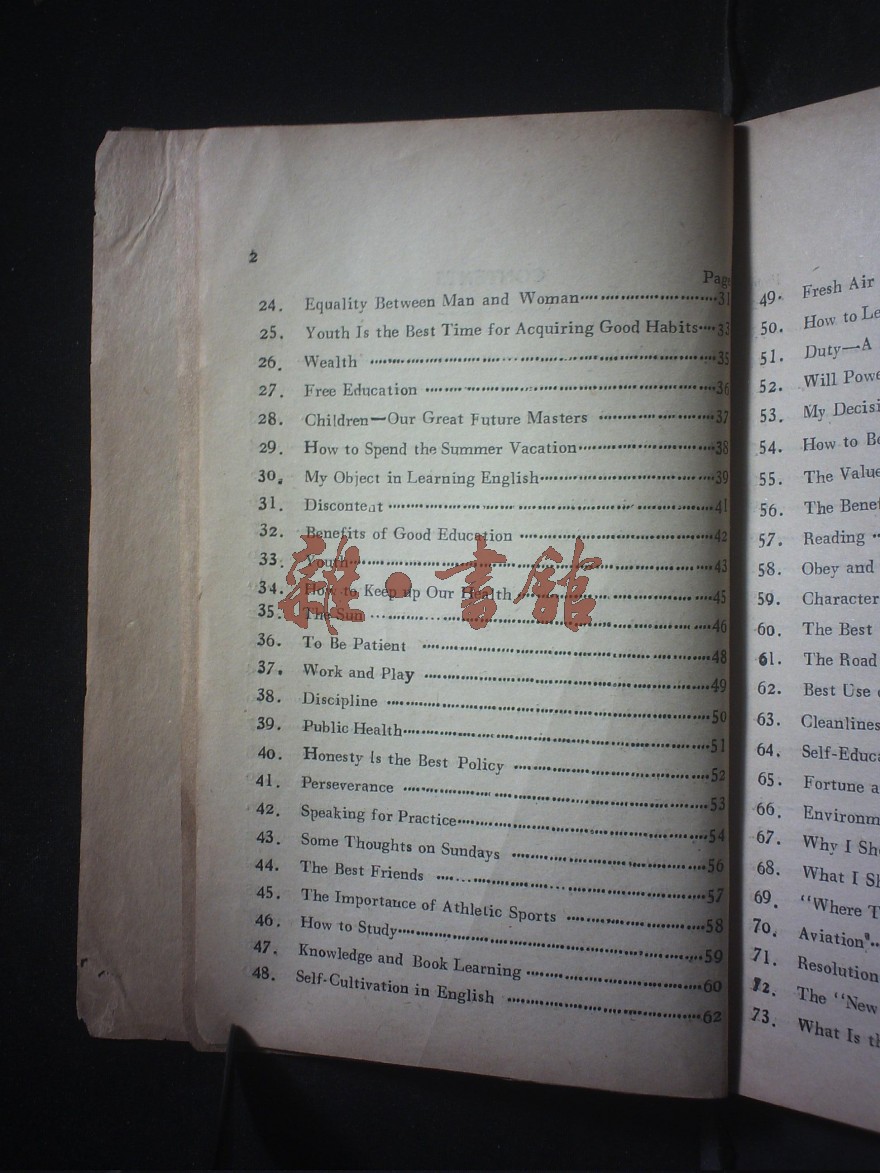 2
Pag
24. Equality Between Man and Woman 31
25. Youth Is the Best Time for Acquiring Good Habits 33
26. Wealth 35
27. Free Education 36
28. Children—Our Great Future Masters 37
29. How to Spend the Summer Vacation 38
30. My Object in Learning English 39
31. Discontent 41
32. Benefits of Good Education 42
33. Youth 43
34. How to Keep up Our Health 45
35. The Sun 46
36. To Be Patient 48
37. Work and Play 49
38. Discipline 50
39. Public Health 51
40. Honesty Is the Best Policy 52
41. Perseverance 53
42. Speaking for Practice 54
43. Some Thoughts on Sundays 56
44. The Best Friends 57
45. The Importance of Athletic Sports 58
46. How to Study 59
47. Knowledge and Book Learning 60
48. Self-Cultivation in English 62
雜·書館
49. Fresh Air
50. How to Le
51. Duty—A
52. Will Powe
53. My Decisi
54. How to Be
55. The Value
56. The Benef
57. Reading
58. Obey and
59. Character
60. The Best
61. The Road
62. Best Use
63. Cleanlines
64. Self-Educa
65. Fortune a
66. Environm
67. Why I Sh
68. What I Sh
69. "Where T
70. Aviation
71. Resolution
72. The "New
73. What Is th